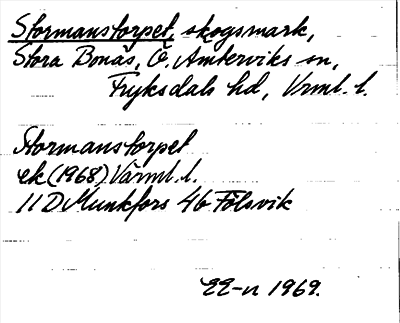 Stormanstorpet, skogsmark,
Stora Bonäs, Ö. Ämterviks sn,
Fryksdals hd, Vrml. l.
Stormanstorpet
ek (1968) Värml. l.
11 D Munkfors 4b Fölsvik
1969.